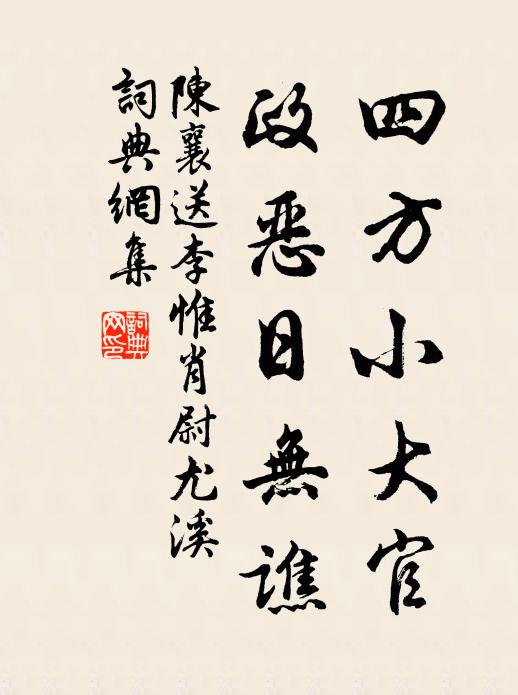 四方小大官
政惡日無譙
陳襄送李惟肖尉尤溪
詞典網集
詞典網印